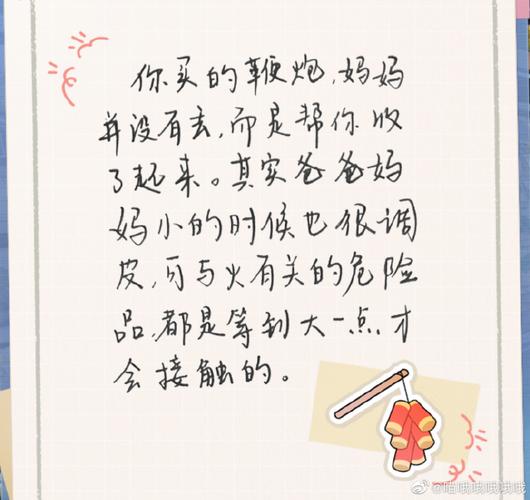 你买的鞭炮,妈妈
并没有丢,而是帮你收
了起来。其实爸爸妈
妈小的时候也很调
皮,可与火有关的危险
品,都是等到大一点才
会接触的。
@啃哦哦哦哦哦